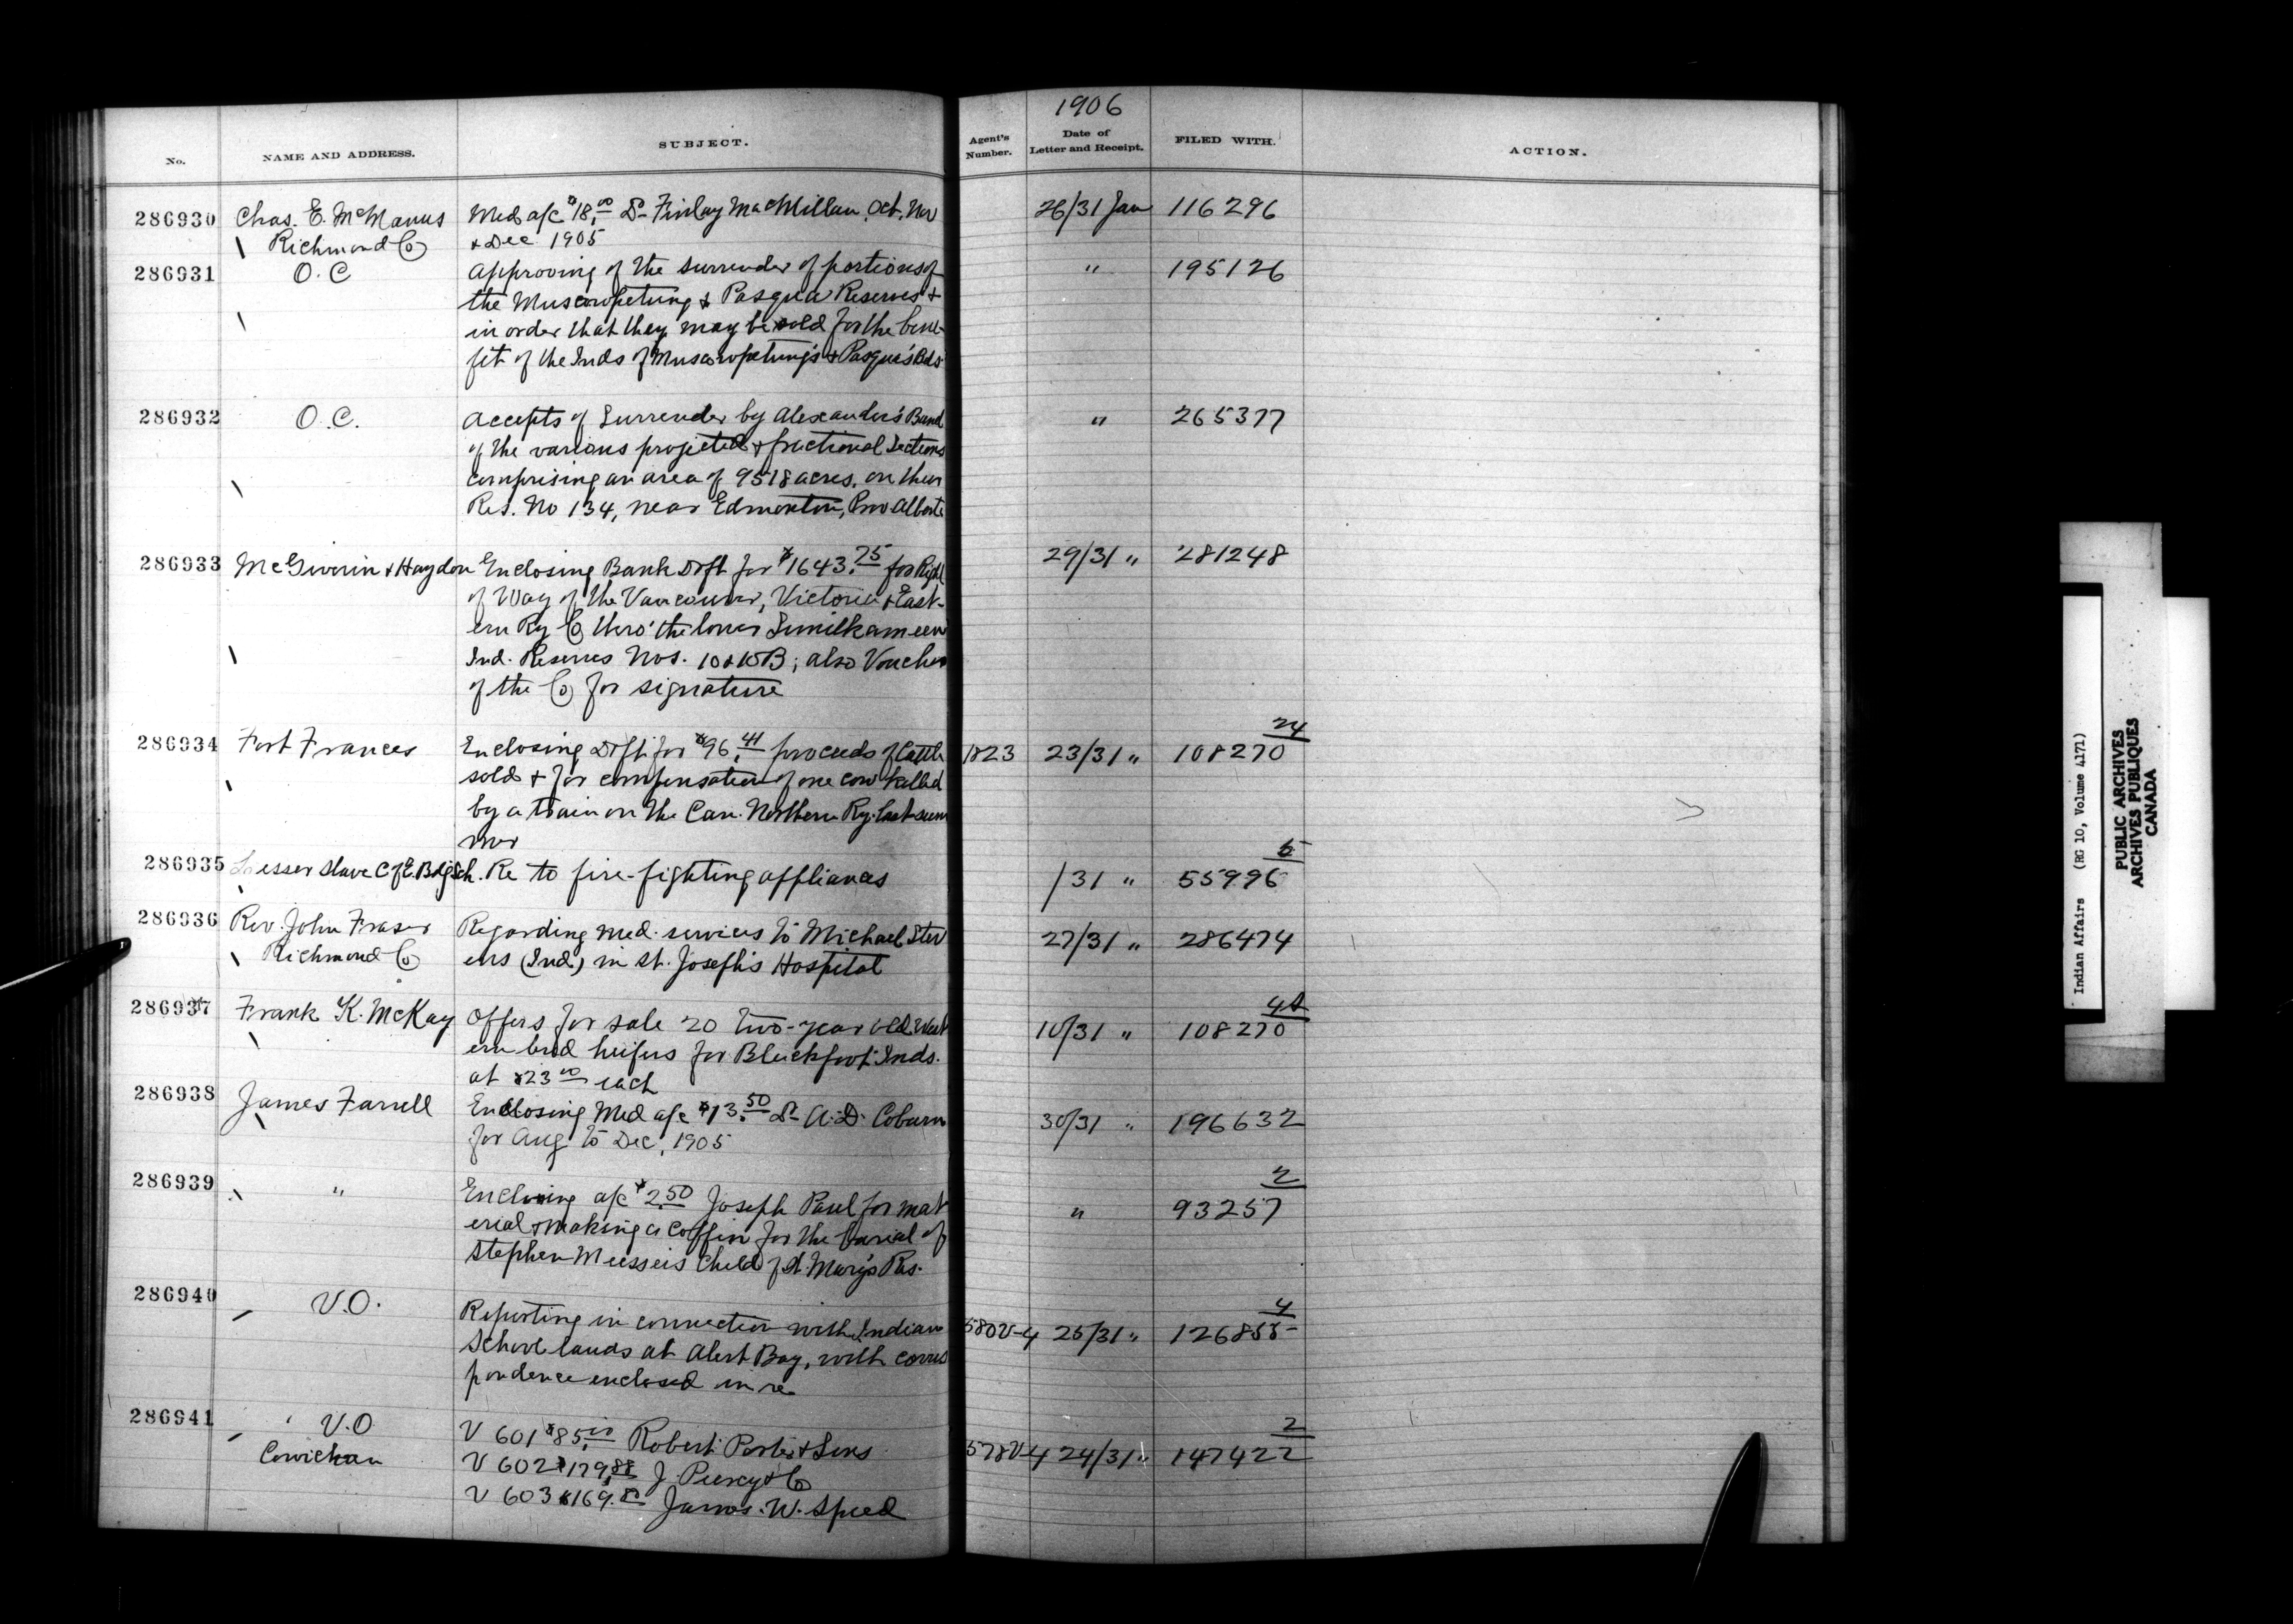 1906
No. NAME AND ADDRESS. SUBJECT. Agent's Number. Date of Letter and Receipt. FILED WITH. ACTION.
286930 Chas. E. McManus Med a/c $18.00 Dr Finlay MacMillan, Oct, Nov 26/31 Jan 116296
Richmond Co & Dec 1905
286931 O.C Approving of the surrender of portions of " 195126
the Muscowpetung & Pasqua Reserves +
in order that they may be sold for the bene-
fit of the Inds of Muscowpetung's & Pasqua's Bds
286932 O.C. Accepts of Surrender by Alexander's Band " 265377
of the various projected & fractional Sections
comprising an area of 9518 acres, on their
Res. No 134, near Edmonton, Prov Alberta
286933 McGiverin & Haydon Enclosing Bank Drft for $1643.75 for Right 29/31 " 281248
of Way of the Vancouver, Victoria & East-
ern Ry Co thro' the lower Similkameen
Ind. Reserves Nos. 10 & 10B; also Voucher
of the Co for signature
286934 Fort Frances Enclosing Drft for $96.41 proceeds of Cattle 1823 23/31 " 108270 24
sold & for compensation of one cow killed
by a train on the Can. Northern Ry. last sum
mer
286935 Lesser Slave C of E. Bdg Sch. Re to fire-fighting appliances /31 " 55996 5
286936 Rev. John Fraser Regarding med. services to Michael Stev 27/31 " 286474
Richmond Co ens (Ind.) in St. Joseph's Hospital
286937 Frank K. McKay Offers for sale 20 two-year old West 10/31 " 108270
ern bred heifers for Blackfoot Inds.
at $23.00 each
286938 James Farrell Enclosing Med a/c $13.50 Dr A.D. Coburn 30/31 " 196632
for Aug to Dec, 1905
286939 " Enclosing a/c $2.50 Joseph Paul for mat " 93257 2
erial & making a Coffin for the burial of
Stephen Child of St. Mary's Res.
286940 V.O. Reporting in connection with Indian 580V-4 25/31 " 126855 4
School lands at Alert Bay, with corres
pondence enclosed in re
286941 V.O V 601 $85.00 Robert Porter & Sons 578V-4 24/31 " 147422 2
Cowichan V 602 $179.88 J. Piercy & Co
V 603 $169. James. W. Speed
Indian Affairs (RG 10, Volume 4171)
PUBLIC ARCHIVES
ARCHIVES PUBLIQUES
CANADA